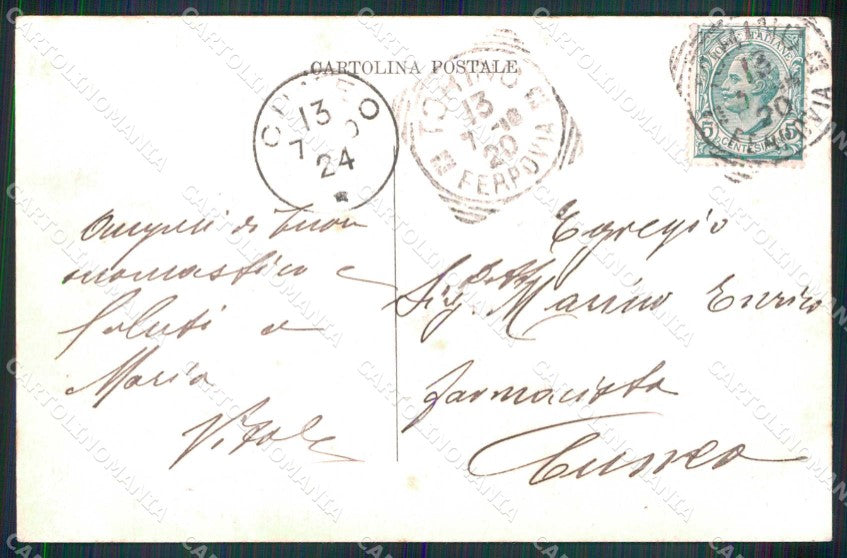 CARTOLINA POSTALE
CUNEO
13
7
24
TORINO
13
7-10
20
FERROVIA
POSTE ITALIANE
5 CENTESIMI 5
13
7
20
FERROVIA
Auguri di buon
onomastico e
Saluti a
Maria
Vitale
Egregio
Sig. Dott. Marino Enrico
farmacista
Cuneo
CARTOLINOMANIA